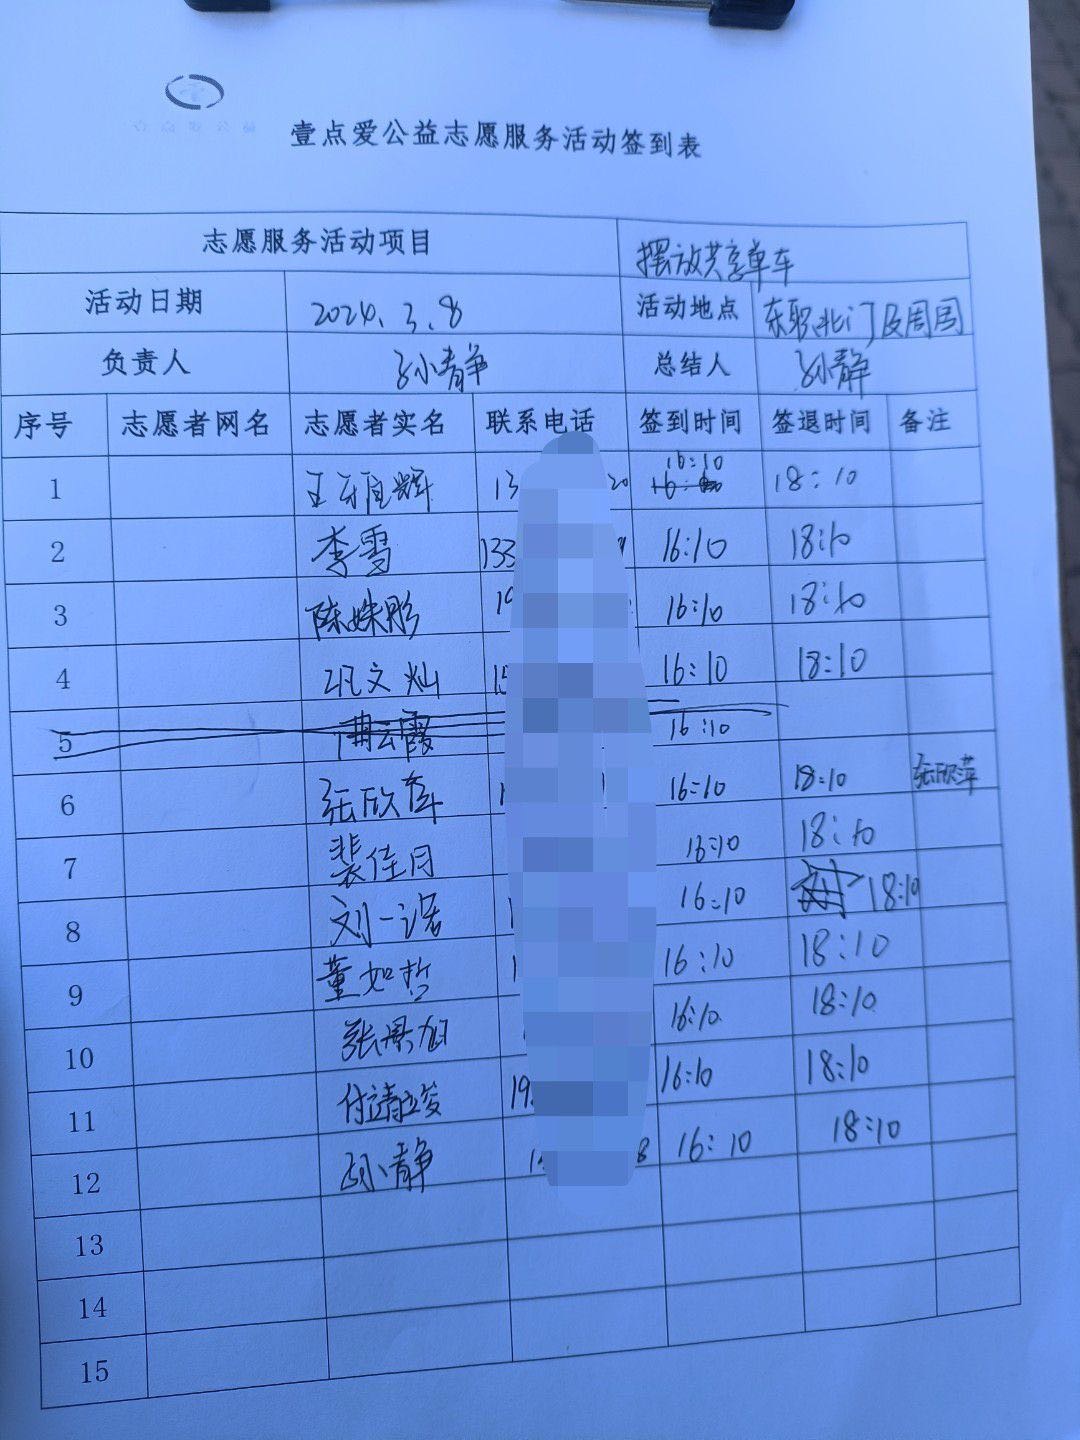 壹点爱公益志愿服务活动签到表
志愿服务活动项目 摆放共享单车
活动日期 2024.3.8 活动地点 东职北门及周围
负责人 孙小静 总结人 孙小静
序号 志愿者网名 志愿者实名 联系电话 签到时间 签退时间 备注
1 13 20 16:10 18:10
2 李雪 133 16:10 18:10
3 陈姝彤 19 16:10 18:10
4 巩文灿 15 16:10 18:10
5 曹云霞 16:10
6 张欣萍 16:10 18:10 张欣萍
7 裴佳月 16:10 18:10
8 刘一诺 16:10 18:10
9 董如哲 16:10 18:10
10 张景旭 16:10 18:10
11 19 16:10 18:10
12 孙小静 8 16:10 18:10
13
14
15